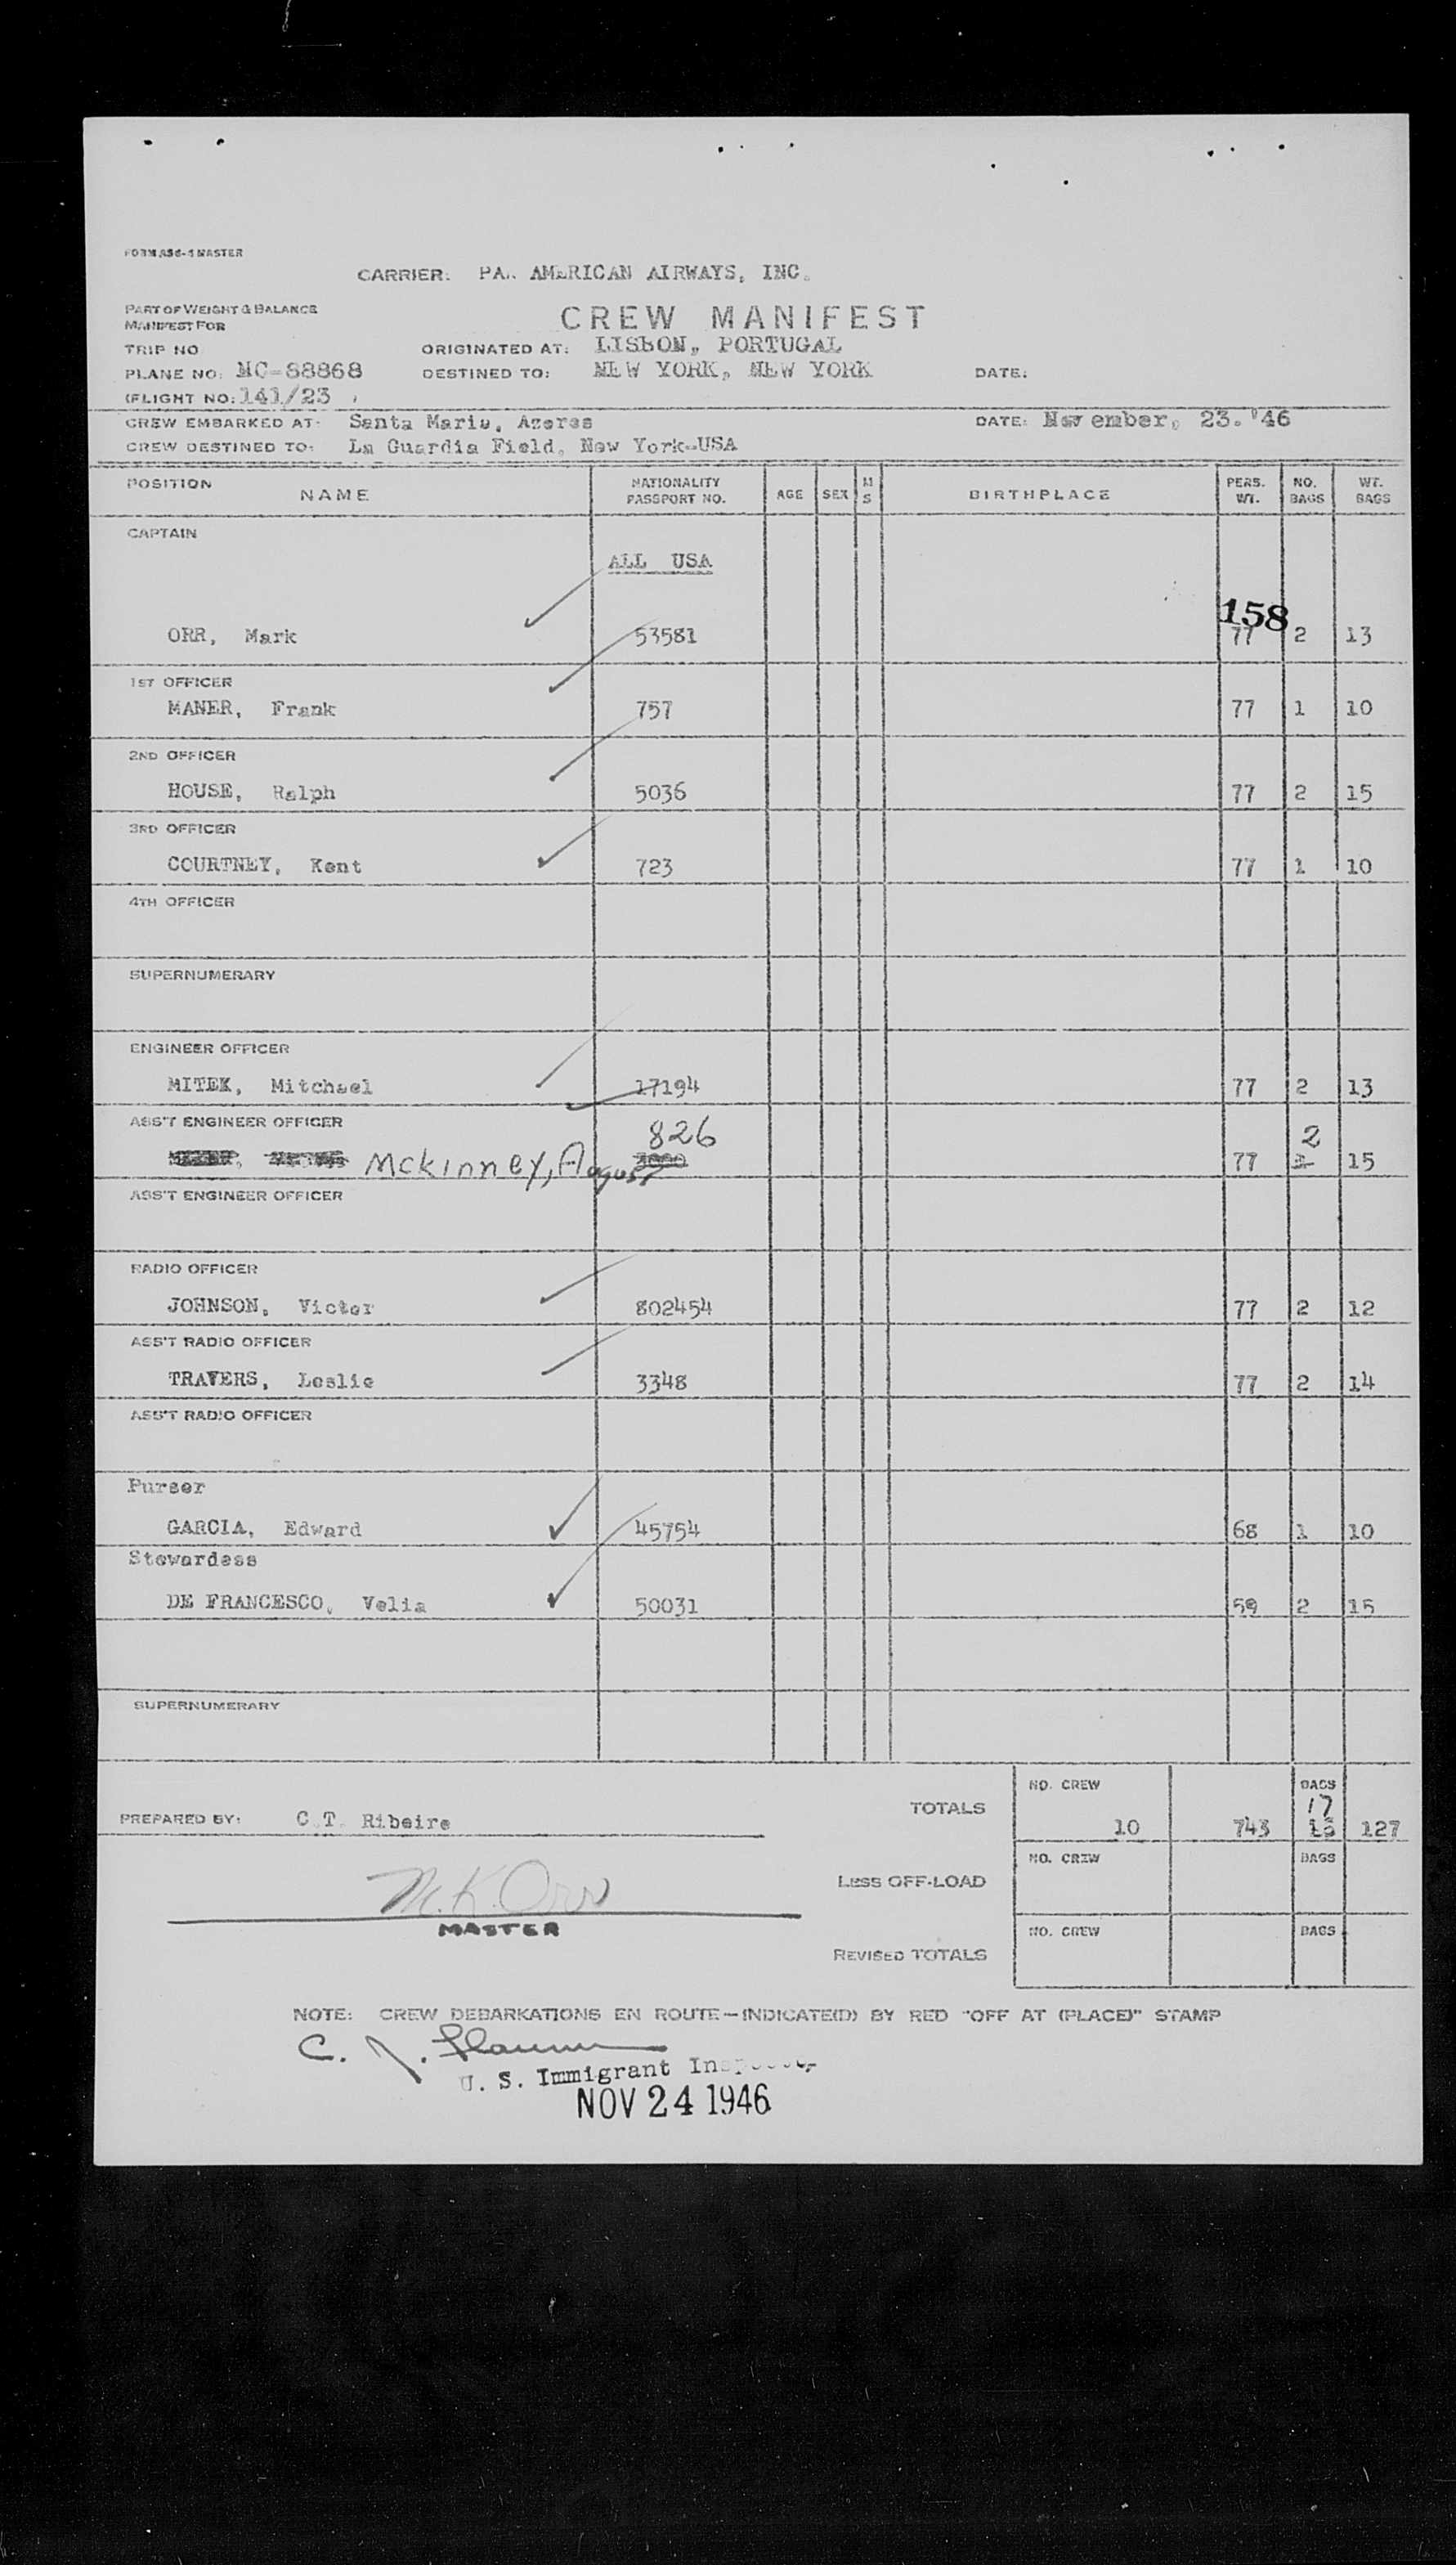 FORM ASC-1 MASTER
CARRIER: PA. AMERICAN AIRWAYS, INC.
PART OF WEIGHT & BALANCE
MANIFEST FOR
CREW MANIFEST
TRIP NO
ORIGINATED AT: LISBON, PORTUGAL
PLANE NO: NC-88868 DESTINED TO: NEW YORK, NEW YORK DATE:
(FLIGHT NO: 141/23
CREW EMBARKED AT: Santa Maria, Azores DATE: November, 23.'46
CREW DESTINED TO: La Guardia Field, New York-USA
POSITION NAME NATIONALITY PASSPORT NO. AGE SEX M S BIRTHPLACE PERS. WT. NO. BAGS WT. BAGS
CAPTAIN
ALL USA
158
ORR, Mark 53581 77 2 13
1ST OFFICER
MANER, Frank 757 77 1 10
2ND OFFICER
HOUSE, Ralph 5036 77 2 15
3RD OFFICER
COURTNEY, Kent 723 77 1 10
4TH OFFICER
SUPERNUMERARY
ENGINEER OFFICER
MITEK, Mitchael 17194 77 2 13
ASS'T ENGINEER OFFICER
826 2
McKinney, August 77 15
ASS'T ENGINEER OFFICER
RADIO OFFICER
JOHNSON, Victor 802454 77 2 12
ASS'T RADIO OFFICER
TRAVERS, Leslie 3348 77 2 14
ASS'T RADIO OFFICER
Purser
GARCIA, Edward 45754 68 1 10
Stewardess
DE FRANCESCO, Velia 50031 59 2 15
SUPERNUMERARY
NO. CREW BAGS
17
PREPARED BY: C.T. Ribeiro TOTALS 10 743 127
NO. CREW BAGS
LESS OFF-LOAD
M.K. Orr
MASTER
NO. CREW BAGS
REVISED TOTALS
NOTE: CREW DEBARKATIONS EN ROUTE—INDICATE(D) BY RED "OFF AT (PLACE)" STAMP
C. J.
U. S. Immigrant Inspector
NOV 24 1946